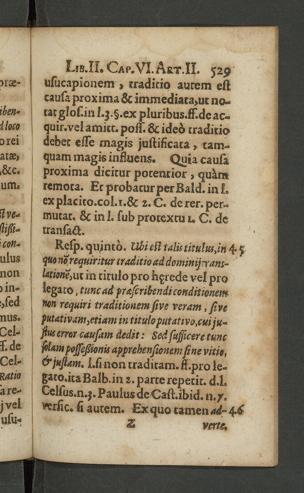 LIB.II. CAP.VI. ART.II. 529
usucapionem, traditio autem est
causa proxima & immediata, ut no-
tat glos. in l.3.§.ex pluribus.ff.de ac-
quir.vel amitt. poss. & ideò traditio
debet esse magis justificata, tam-
quam magis influens. Quia causa
proxima dicitur potentior, quàm
remota. Et probatur per Bald. in l.
ex placito.col.1.& 2. C. de rer. per-
mutat. & in l. sub protextu 1. C. de
transact.
Resp. quintò. Ubi est talis titulus, in 45
quo nõ requiritur traditio ad dominij trans-
lationẽ, ut in titulo pro hęrede vel pro
legato, tunc ad præscribendi conditionem
non requiri traditionem sive veram, sive
putativam, etiam in titulo putativo, cui ju-
stus error causam dedit: Sed sufficere tunc
solam possessionis apprehensionem sine vitio,
& justam. l.si non traditam. ff. pro le-
gato. ita Balb. in 2. parte repetit. d.l.
Celsus.n.3. Paulus de Cast. ibid. n.7.
versic. si autem. Ex quo tamen ad- 46
Z verte,
præ-
iben-
d loco
o rei
&c.
um.
con-
ulus
non
o in-
,sed
mus.
Cel-
ff. de
Cel-
Ratio
a re-
j vel
usu-